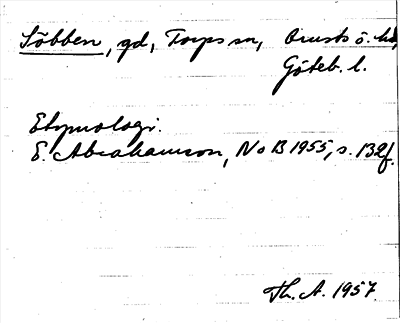 Söbben, gd, Torps sn, Orusts ö. hd,
Göteb. l.
Etymologi.
E. Abrahamson, NoB 1955, s. 132f.
Th. A. 1957.